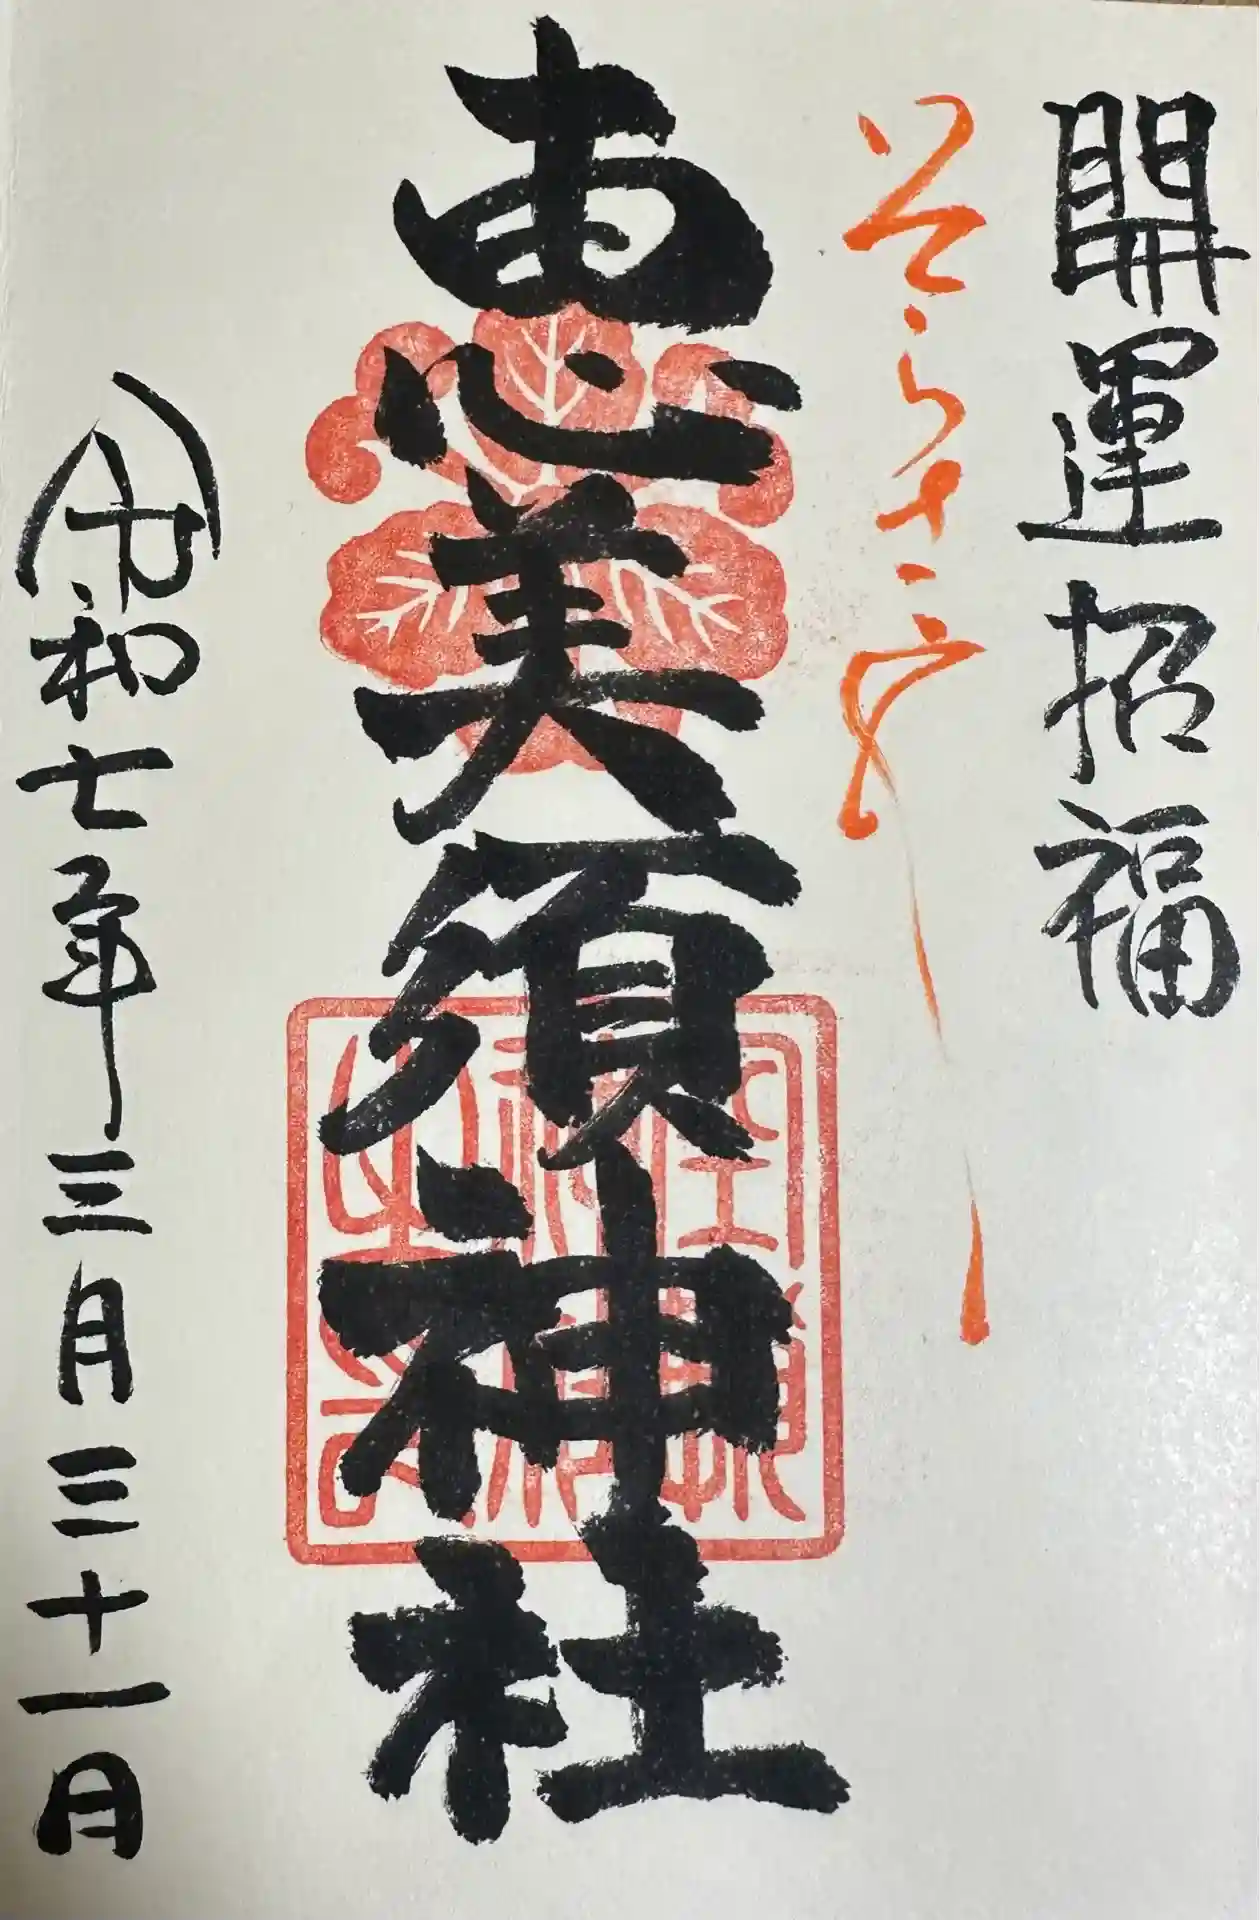 開運招福
恵美須神社
令和七年三月三十一日